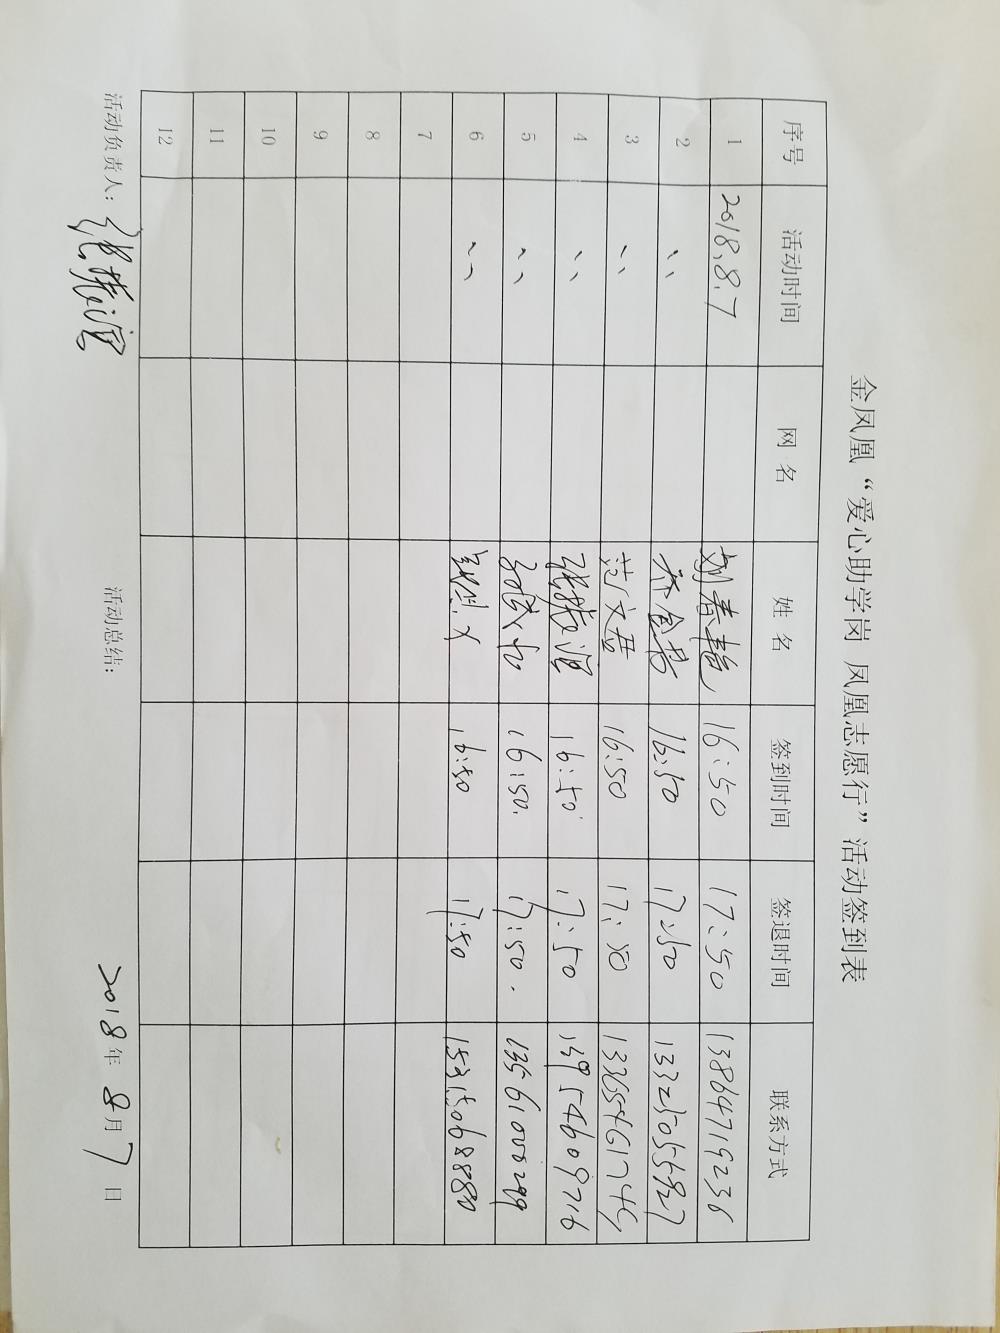 金凤凰“爱心助学岗 凤凰志愿行”活动签到表
序号 活动时间 网名 姓名 签到时间 签退时间 联系方式
1 2018.8.7 刘春艳 16:50 17:50 13864719236
2 、、 16:50 17:50 13325055927
3 、、 16:50 17:50
4 、、 张振滨 16:50 17:50 13954609716
5 、、 16:50. 17:50. 13561000299
6 、、 16:50 17:50 15315068880
7
8
9
10
11
12
活动负责人：张振滨 活动总结： 2018年8月7日